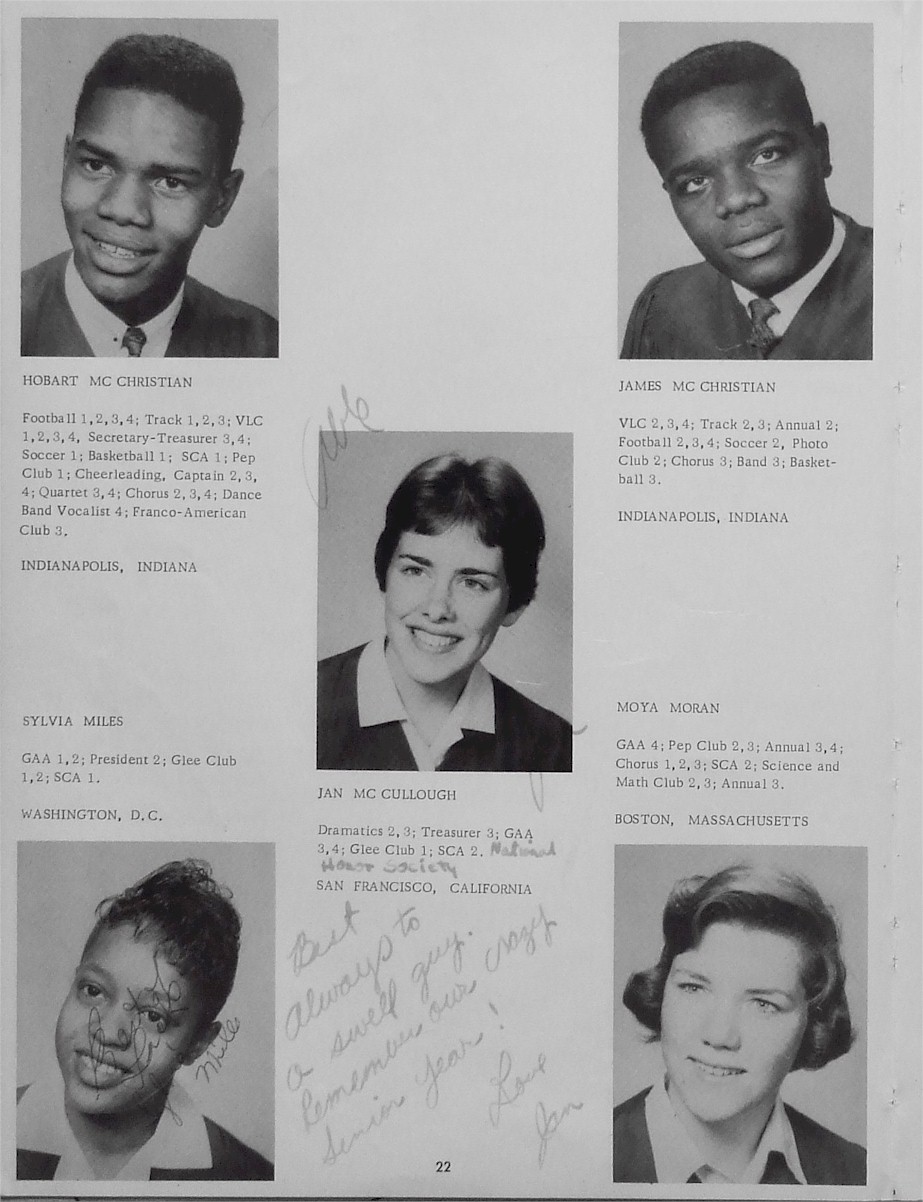 HOBART MC CHRISTIAN
Football 1,2,3,4; Track 1,2,3; VLC
1,2,3,4, Secretary-Treasurer 3,4;
Soccer 1; Basketball 1; SCA 1; Pep
Club 1; Cheerleading, Captain 2,3,
4; Quartet 3,4; Chorus 2,3,4; Dance
Band Vocalist 4; Franco-American
Club 3.
INDIANAPOLIS, INDIANA
JAMES MC CHRISTIAN
VLC 2,3,4; Track 2,3; Annual 2;
Football 2,3,4; Soccer 2, Photo
Club 2; Chorus 3; Band 3; Basket-
ball 3.
INDIANAPOLIS, INDIANA
JAN MC CULLOUGH
Dramatics 2,3; Treasurer 3; GAA
3,4; Glee Club 1; SCA 2. National
Honor Society
SAN FRANCISCO, CALIFORNIA
Best
Always to
a swell guy.
Remember our crazy
Senior Year!
Love
Jan
SYLVIA MILES
GAA 1,2; President 2; Glee Club
1,2; SCA 1.
WASHINGTON, D.C.
Best
Miles
MOYA MORAN
GAA 4; Pep Club 2,3; Annual 3,4;
Chorus 1,2,3; SCA 2; Science and
Math Club 2,3; Annual 3.
BOSTON, MASSACHUSETTS
22